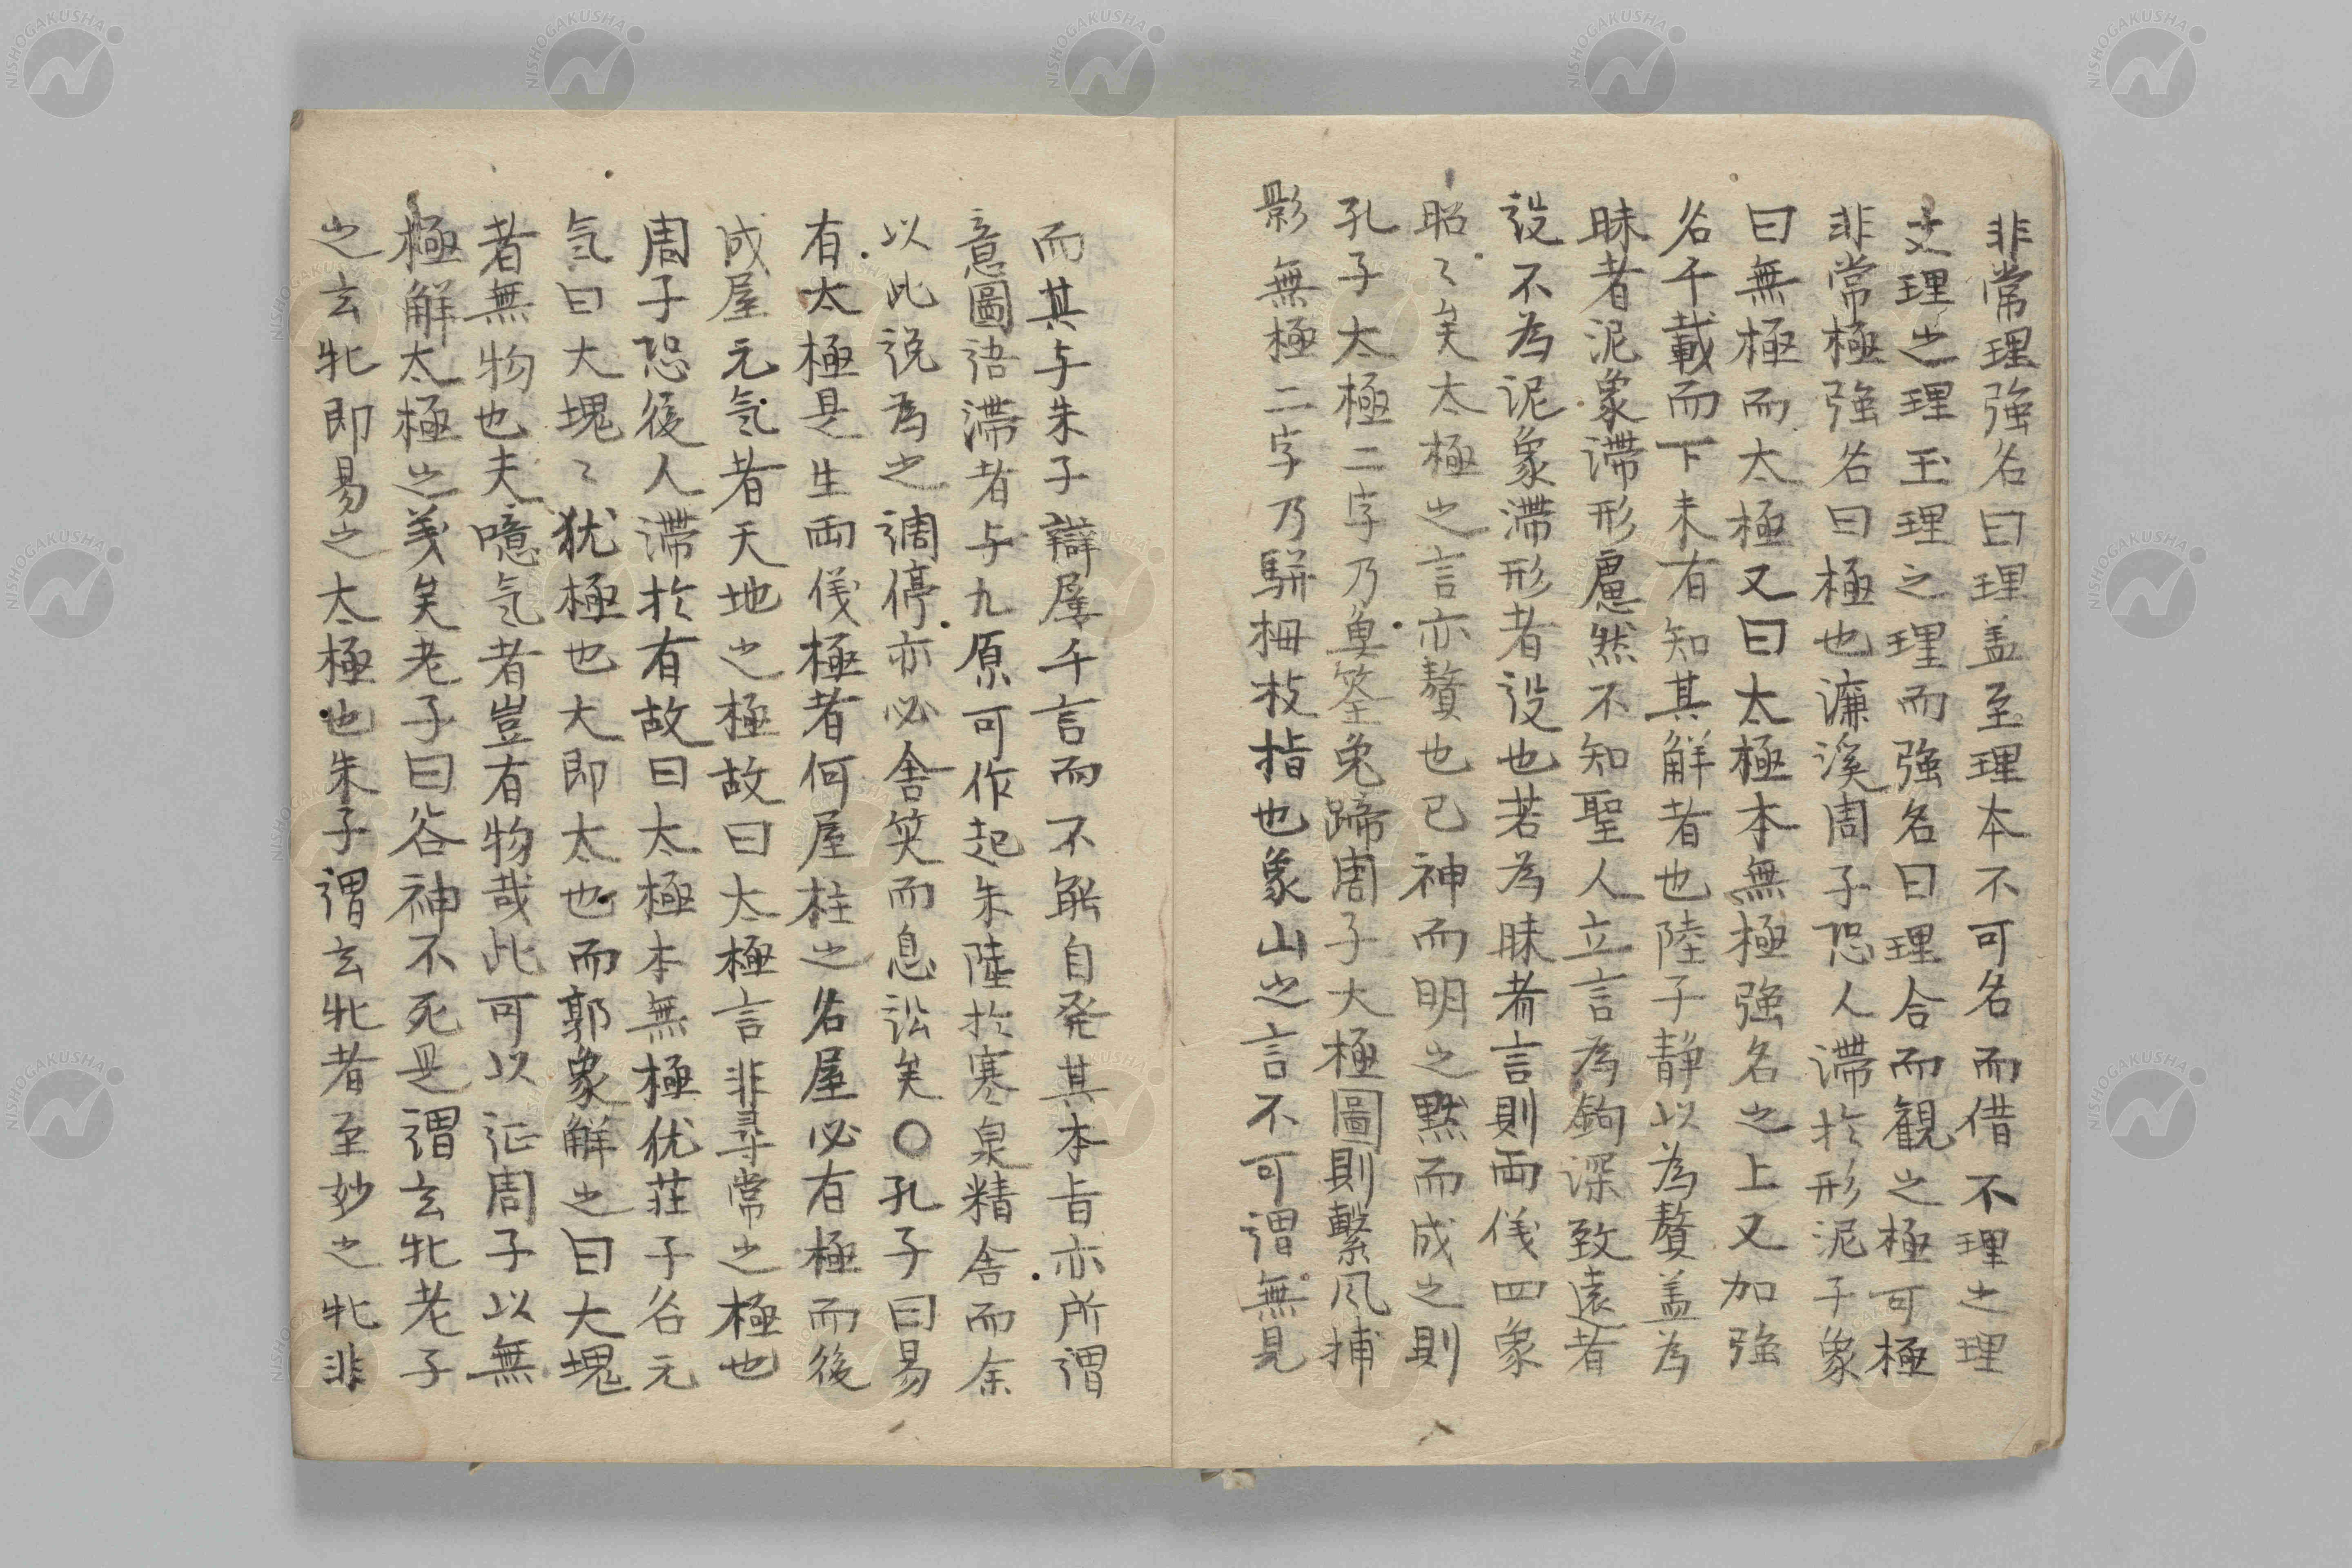 非常理強名曰理盖至理本不可名而借不理之理
文理之理玉理之理而強名曰理合而観之極可極
非常極強名曰極也濂溪周子恐人滞於形泥子象
曰無極而太極又曰太極本無極強名之上又加強
名千載而下未有知其解者也陸子静以為贅盖為
昧者泥象滞形慮然不知聖人立言為鉤深致遠者
設不為泥象滞形者設也若為昧者言則両儀四象
昭〻矣太極之言亦贅也已神而明之黙而成之則
孔子太極二字乃魚筌兔蹄周子大極圖則繫風捕
影無極二字乃駢拇枝指也象山之言不可謂無見
而其与朱子辯屢千言而不能自発其本旨亦所謂
意圖語滞者与九原可作起朱陸於寒泉精舎而余
以此説為之調停亦必舎笑而息訟矣〇孔子曰易
有太極是生両儀極者何屋柱之名屋必有極而後
成屋元氣者天地之極故曰太極言非尋常之極也
周子恐後人滞於有故曰太極本無極優荘子名元
気曰大塊〻犹極也大即太也而郭象解之曰大塊
者無物也夫噫気者豈有物哉此可以证周子以無
極解太極之義矣老子曰谷神不死是謂玄牝老子
之玄牝即易之太極也朱子謂玄牝者至妙之牝非
NISHOGAKUSHA